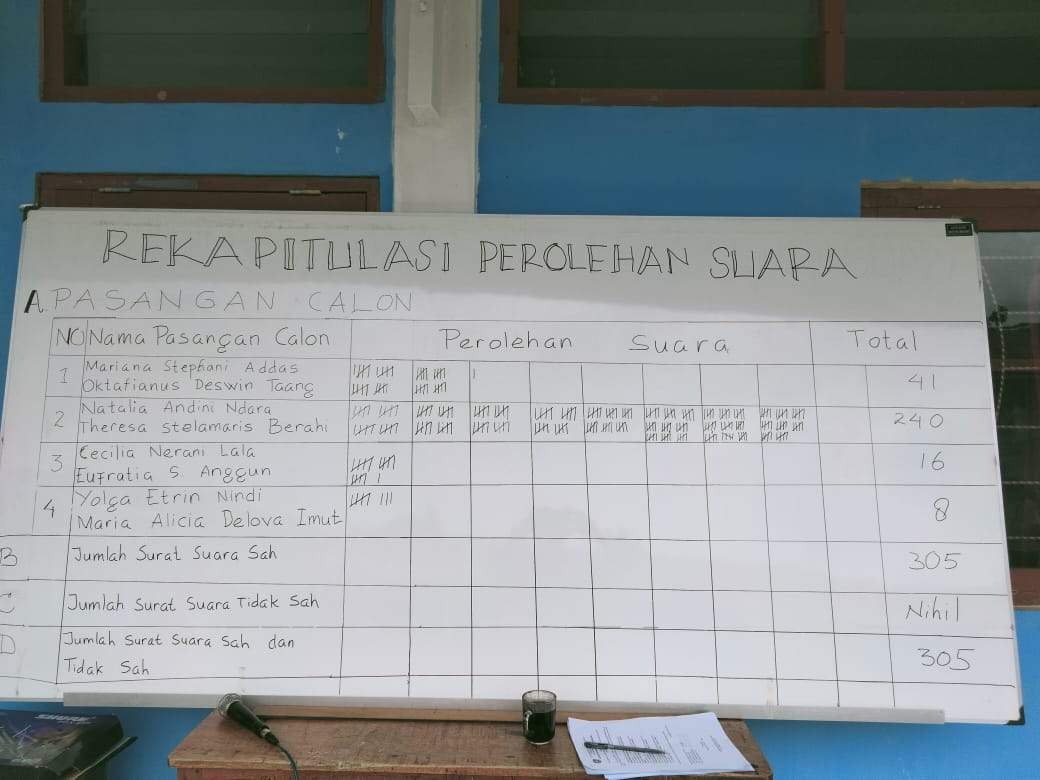 REKAPITULASI PEROLEHAN SUARA
A. PASANGAN CALON
NO Nama Pasangan Calon Perolehan Suara Total
1 Mariana Stephani Addas
Oktafianus Deswin Taang 41
2 Natalia Andini Ndara
Theresa Stelamaris Berahi 240
3 Cecilia Nerani Lala
Eufratia S. Anggun 16
4 Yolga Etrin Nindi
Maria Alicia Delova Imut 8
B Jumlah Surat Suara Sah 305
C Jumlah Surat Suara Tidak Sah Nihil
D Jumlah Surat Suara Sah dan
Tidak Sah 305